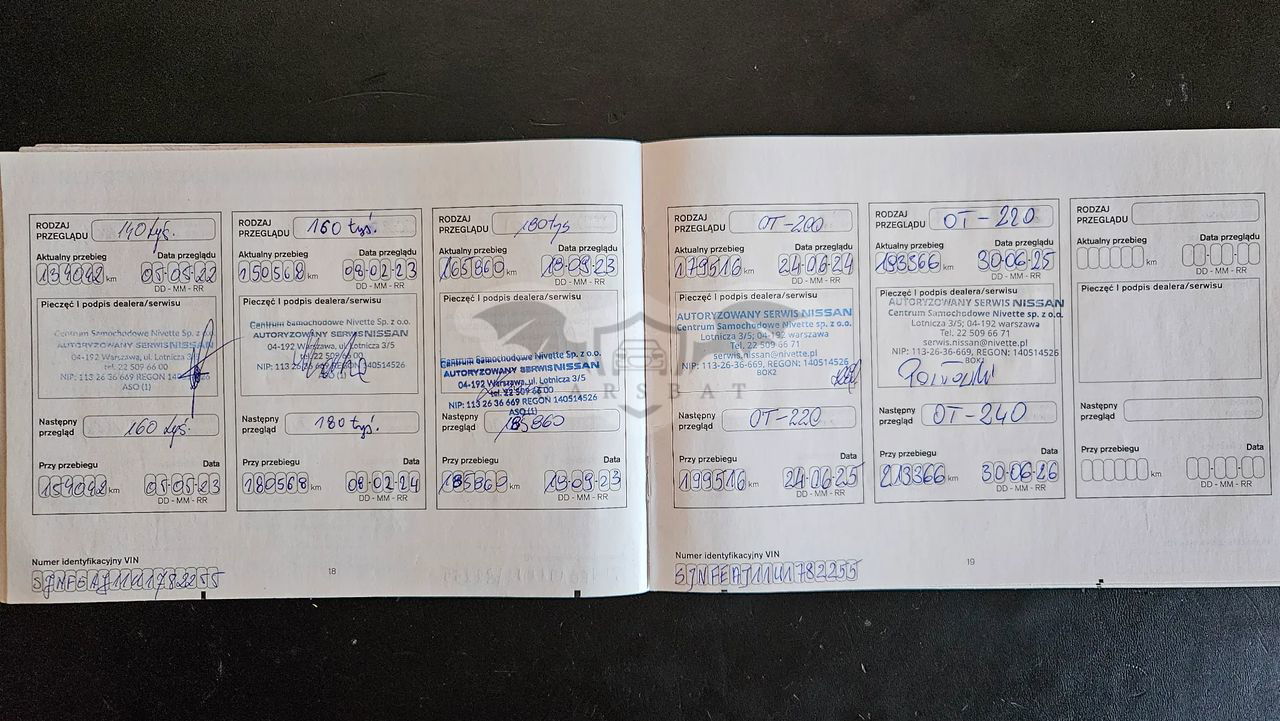 RODZAJ PRZEGLĄDU 140 tyś.
Aktualny przebieg Data przeglądu
139042 km 05-05-22
DD - MM - RR
Pieczęć I podpis dealera/serwisu
Centrum Samochodowe Nivette Sp. z o.o.
AUTORYZOWANY SERWIS NISSAN
04-192 Warszawa, ul. Lotnicza 3/5
tel. 22 509 66 00
NIP: 113 26 36 669 REGON 140514526
ASO (1)
Następny przegląd 160 tyś.
Przy przebiegu Data
159042 km 05-05-23
DD - MM - RR
RODZAJ PRZEGLĄDU 160 tyś.
Aktualny przebieg Data przeglądu
150568 km 08-02-23
DD - MM - RR
Pieczęć I podpis dealera/serwisu
Centrum Samochodowe Nivette Sp. z o.o.
AUTORYZOWANY SERWIS NISSAN
04-192 Warszawa, ul. Lotnicza 3/5
tel. 22 509 66 00
NIP: 113 26 36 669 REGON 140514526
Następny przegląd 180 tyś.
Przy przebiegu Data
180568 km 08-02-24
DD - MM - RR
RODZAJ PRZEGLĄDU 180 tys
Aktualny przebieg Data przeglądu
165860 km 19-09-23
DD - MM - RR
Pieczęć I podpis dealera/serwisu
Centrum Samochodowe Nivette Sp. z o.o.
AUTORYZOWANY SERWIS NISSAN
04-192 Warszawa, ul. Lotnicza 3/5
tel. 22 509 66 00
NIP: 113 26 36 669 REGON 140514526
ASO (1)
Następny przegląd 185860
Przy przebiegu Data
185860 km 19-09-23
DD - MM - RR
Numer identyfikacyjny VIN
SJNFEAJ11U1782255
18
RODZAJ PRZEGLĄDU OT-200
Aktualny przebieg Data przeglądu
179516 km 24-06-24
DD - MM - RR
Pieczęć I podpis dealera/serwisu
AUTORYZOWANY SERWIS NISSAN
Centrum Samochodowe Nivette Sp. z o.o.
Lotnicza 3/5; 04-192 warszawa
Tel. 22 509 66 71
serwis.nissan@nivette.pl
NIP: 113-26-36-669, REGON: 140514526
BOK2
Następny przegląd OT-220
Przy przebiegu Data
199516 km 24-06-25
DD - MM - RR
RODZAJ PRZEGLĄDU OT-220
Aktualny przebieg Data przeglądu
193366 km 30-06-25
DD - MM - RR
Pieczęć I podpis dealera/serwisu
AUTORYZOWANY SERWIS NISSAN
Centrum Samochodowe Nivette Sp. z o.o.
Lotnicza 3/5; 04-192 warszawa
Tel. 22 509 66 71
serwis.nissan@nivette.pl
NIP: 113-26-36-669, REGON: 140514526
BOK2
Następny przegląd OT-240
Przy przebiegu Data
213366 km 30-06-26
DD - MM - RR
RODZAJ PRZEGLĄDU
Aktualny przebieg Data przeglądu
km
DD - MM - RR
Pieczęć I podpis dealera/serwisu
Następny przegląd
Przy przebiegu Data
km
DD - MM - RR
Numer identyfikacyjny VIN
SJNFEAJ11U1782255
19
ARSBAT